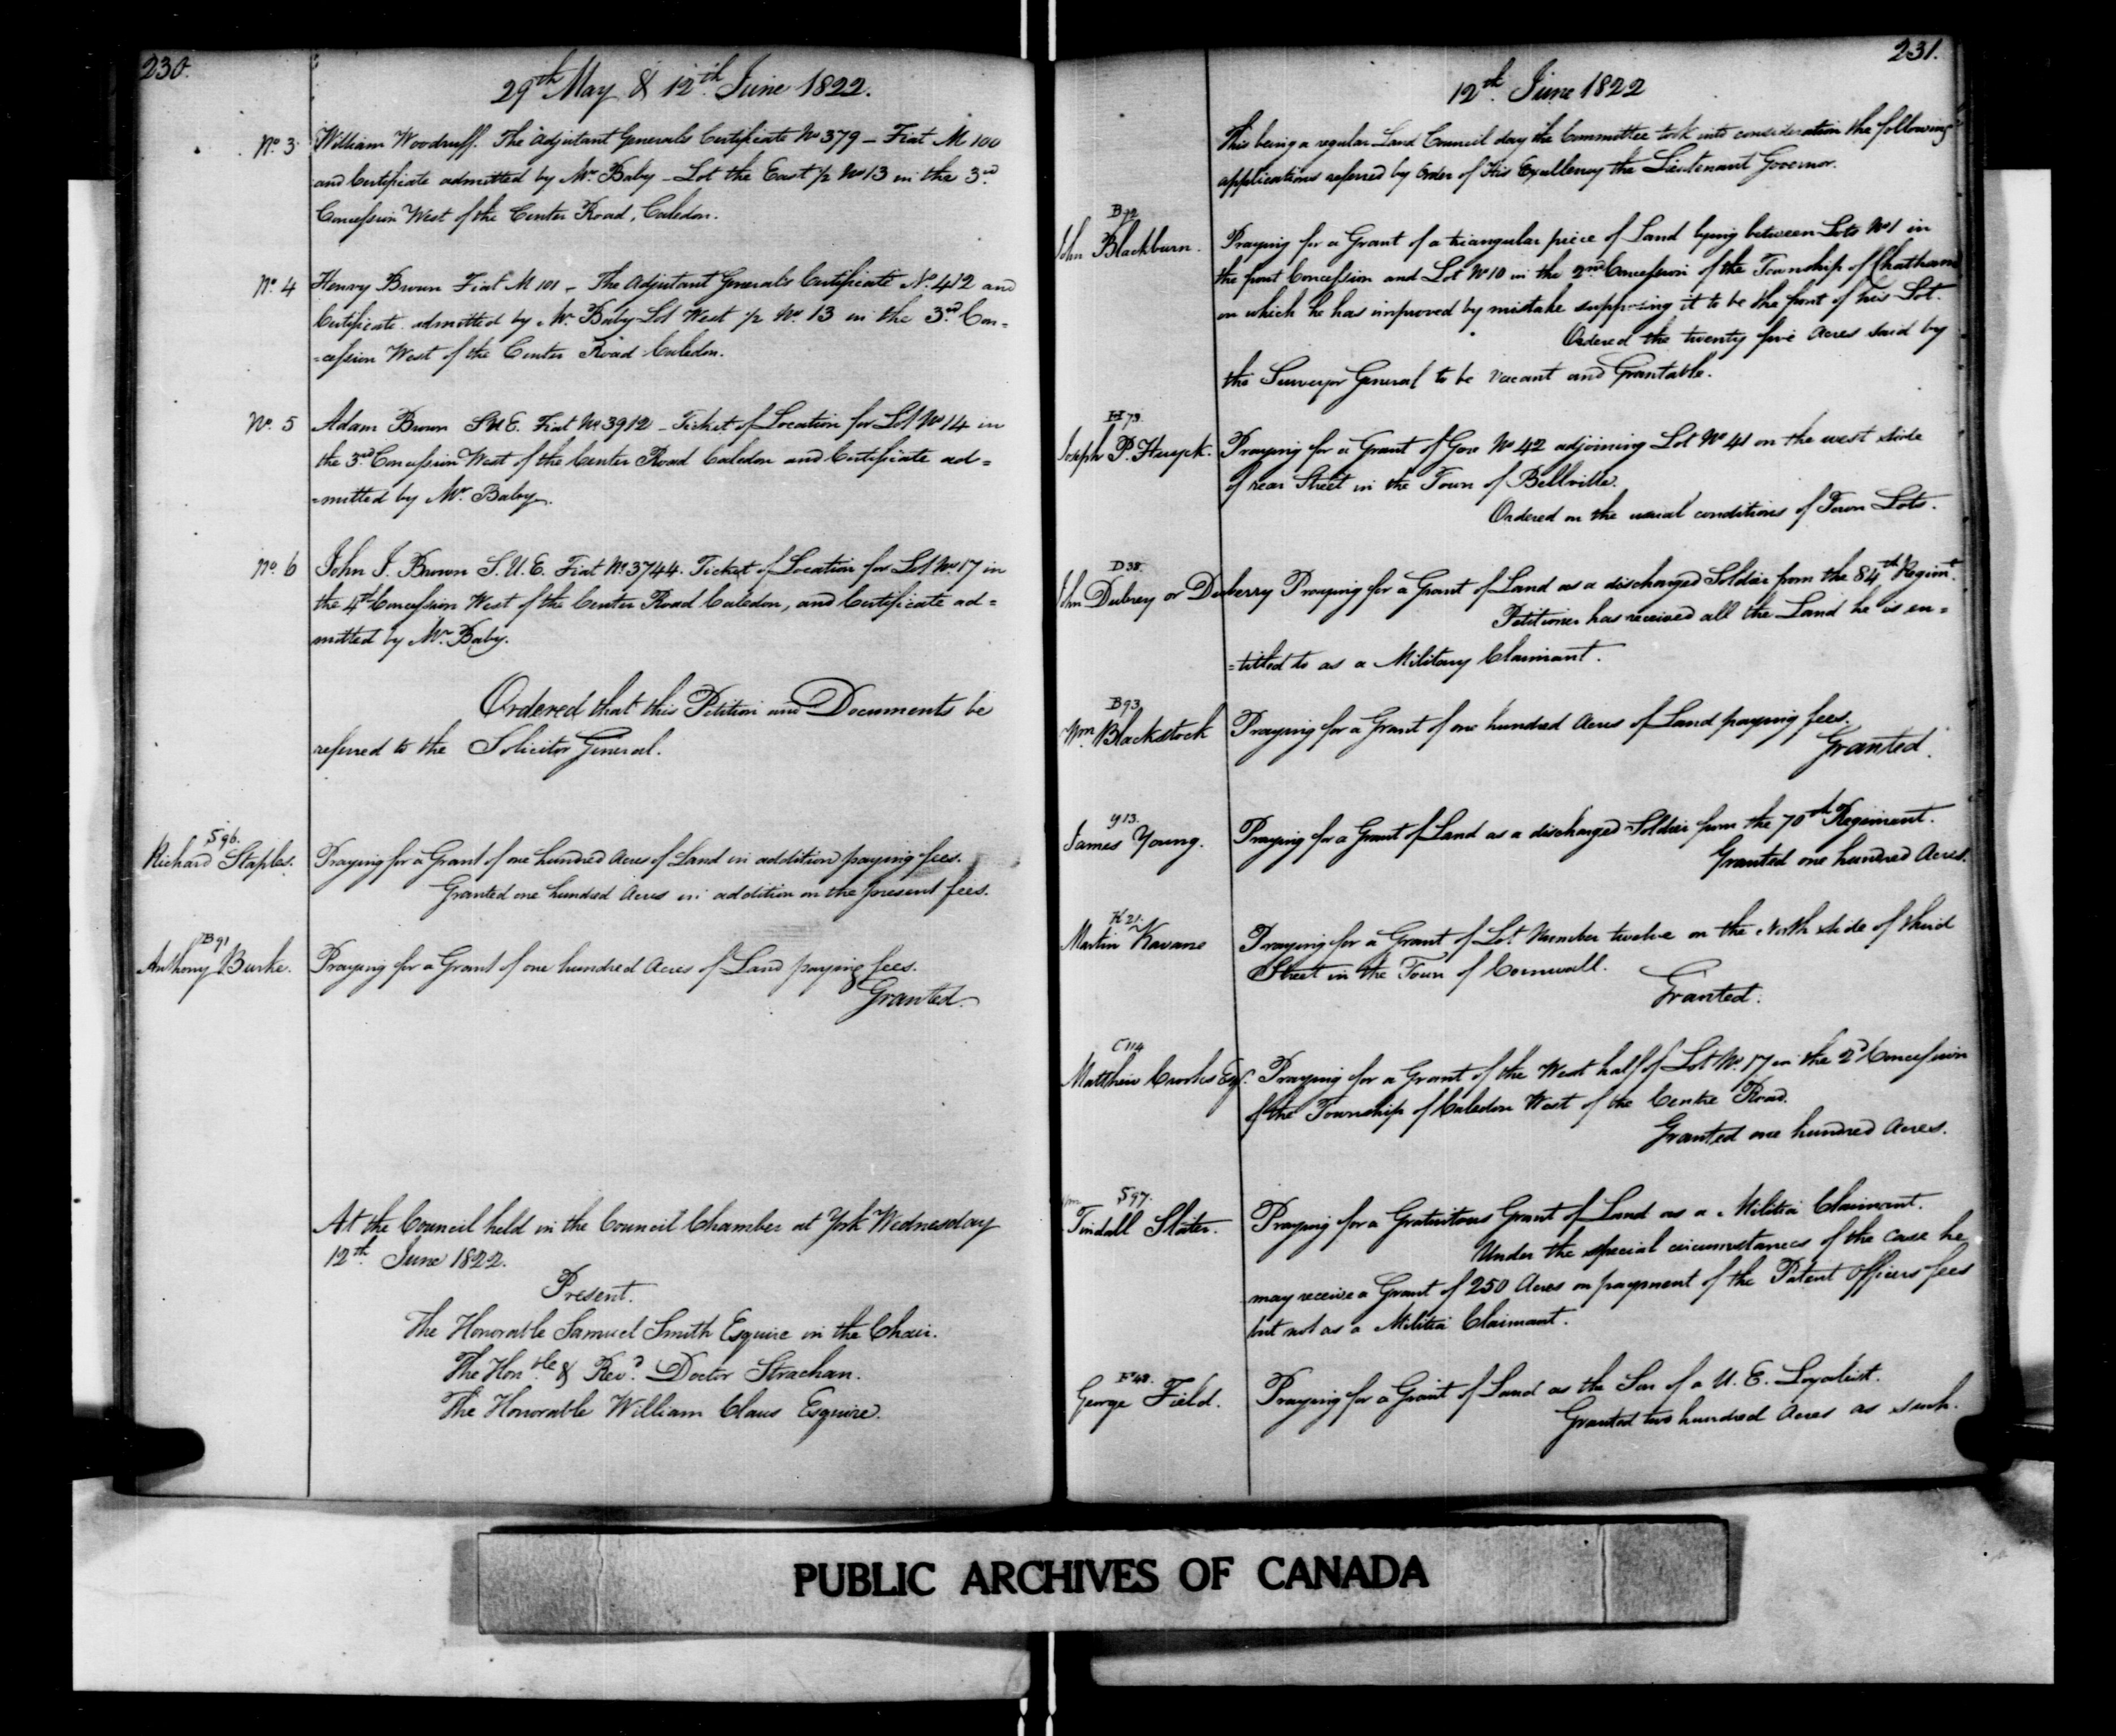 230.
29th May & 12th June 1822.
No. 3 William Woodruff. The Adjutant Generals Certificate No 379 - Fiat M 100
and Certificate admitted by Mr. Baby - Lot the East 1/2 No 13 in the 3rd
Concession West of the Center Road, Caledon.
No. 4 Henry Brown Fiat M 101 - The Adjutant Generals Certificate No. 412 and
Certificate admitted by Mr. Baby Lot West 1/2 No. 13 in the 3rd Con=
=cession West of the Center Road Caledon.
No. 5 Adam Brown S U E. Fiat No 3912 - Ticket of Location for Lot No 14 in
the 3rd Concession West of the Center Road Caledon and Certificate ad=
=mitted by Mr. Baby.
No. 6 John J. Brown S. U. E. Fiat No 3744. Ticket of Location for Lot No. 17 in
the 4th Concession West of the Center Road Caledon, and Certificate ad=
mitted by Mr. Baby.
Ordered that this Petition and Documents be
referred to the Solicitor General.
S 96.
Richard Staples. Praying for a Grant of one hundred Acres of Land in addition paying fees.
Granted one hundred Acres in addition on the present fees.
B 91
Anthony Burke. Praying for a Grant of one hundred Acres of Land paying fees.
Granted.
At the Council held in the Council Chamber at York Wednesday
12th. June 1822.
Present.
The Honorable Samuel Smith Esquire in the Chair.
The Honble. & Revd. Doctor Strachan.
The Honorable William Claus Esquire.
231.
12th. June 1822
This being a regular Land Council day the Committee took into consideration the following
applications referred by Order of His Excellency the Lieutenant Governor.
John Blackburn. Praying for a Grant of a triangular piece of Land lying between Lots No 1 in
the front Concession and Lot No 10 in the 2nd Concession of the Township of Chatham
on which he has improved by mistake supposing it to be the front of his Lot.
Ordered the twenty five Acres said by
the Surveyor General to be vacant and Grantable.
H 73.
Joseph P. Huyck. Praying for a Grant of Gore No 42 adjoining Lot No 41 on the west side
of rear Street in the Town of Bellville.
Ordered on the usual conditions of Town Lots.
D 38.
John Dubrey or Duberry Praying for a Grant of Land as a discharged Soldier from the 84th Regimt.
Petitioner has received all the Land he is en=
=titled to as a Military Claimant.
B 93
Wm. Blackstock Praying for a Grant of one hundred Acres of Land paying fees.
Granted.
Y 13.
James Young. Praying for a Grant of Land as a discharged Soldier from the 70th Regiment.
Granted one hundred Acres.
K 21.
Martin Kavane Praying for a Grant of Lot Number twelve on the North side of third
Street in the Town of Cornwall.
Granted.
C 114
Matthew Crooks Esqr. Praying for a Grant of the West half of Lot No. 17 in the 2d Concession
of the Township of Caledon West of the Centre Road.
Granted one hundred Acres.
S 97.
Tindall Slater. Praying for a Gratuitous Grant of Land as a Militia Claimant.
Under the special circumstances of the case he
may receive a Grant of 250 Acres on payment of the Patent Officers fees
but not as a Militia Claimant.
F 48.
George Field. Praying for a Grant of Land as the Son of a U. E. Loyalist.
Granted two hundred Acres as such.
PUBLIC ARCHIVES OF CANADA